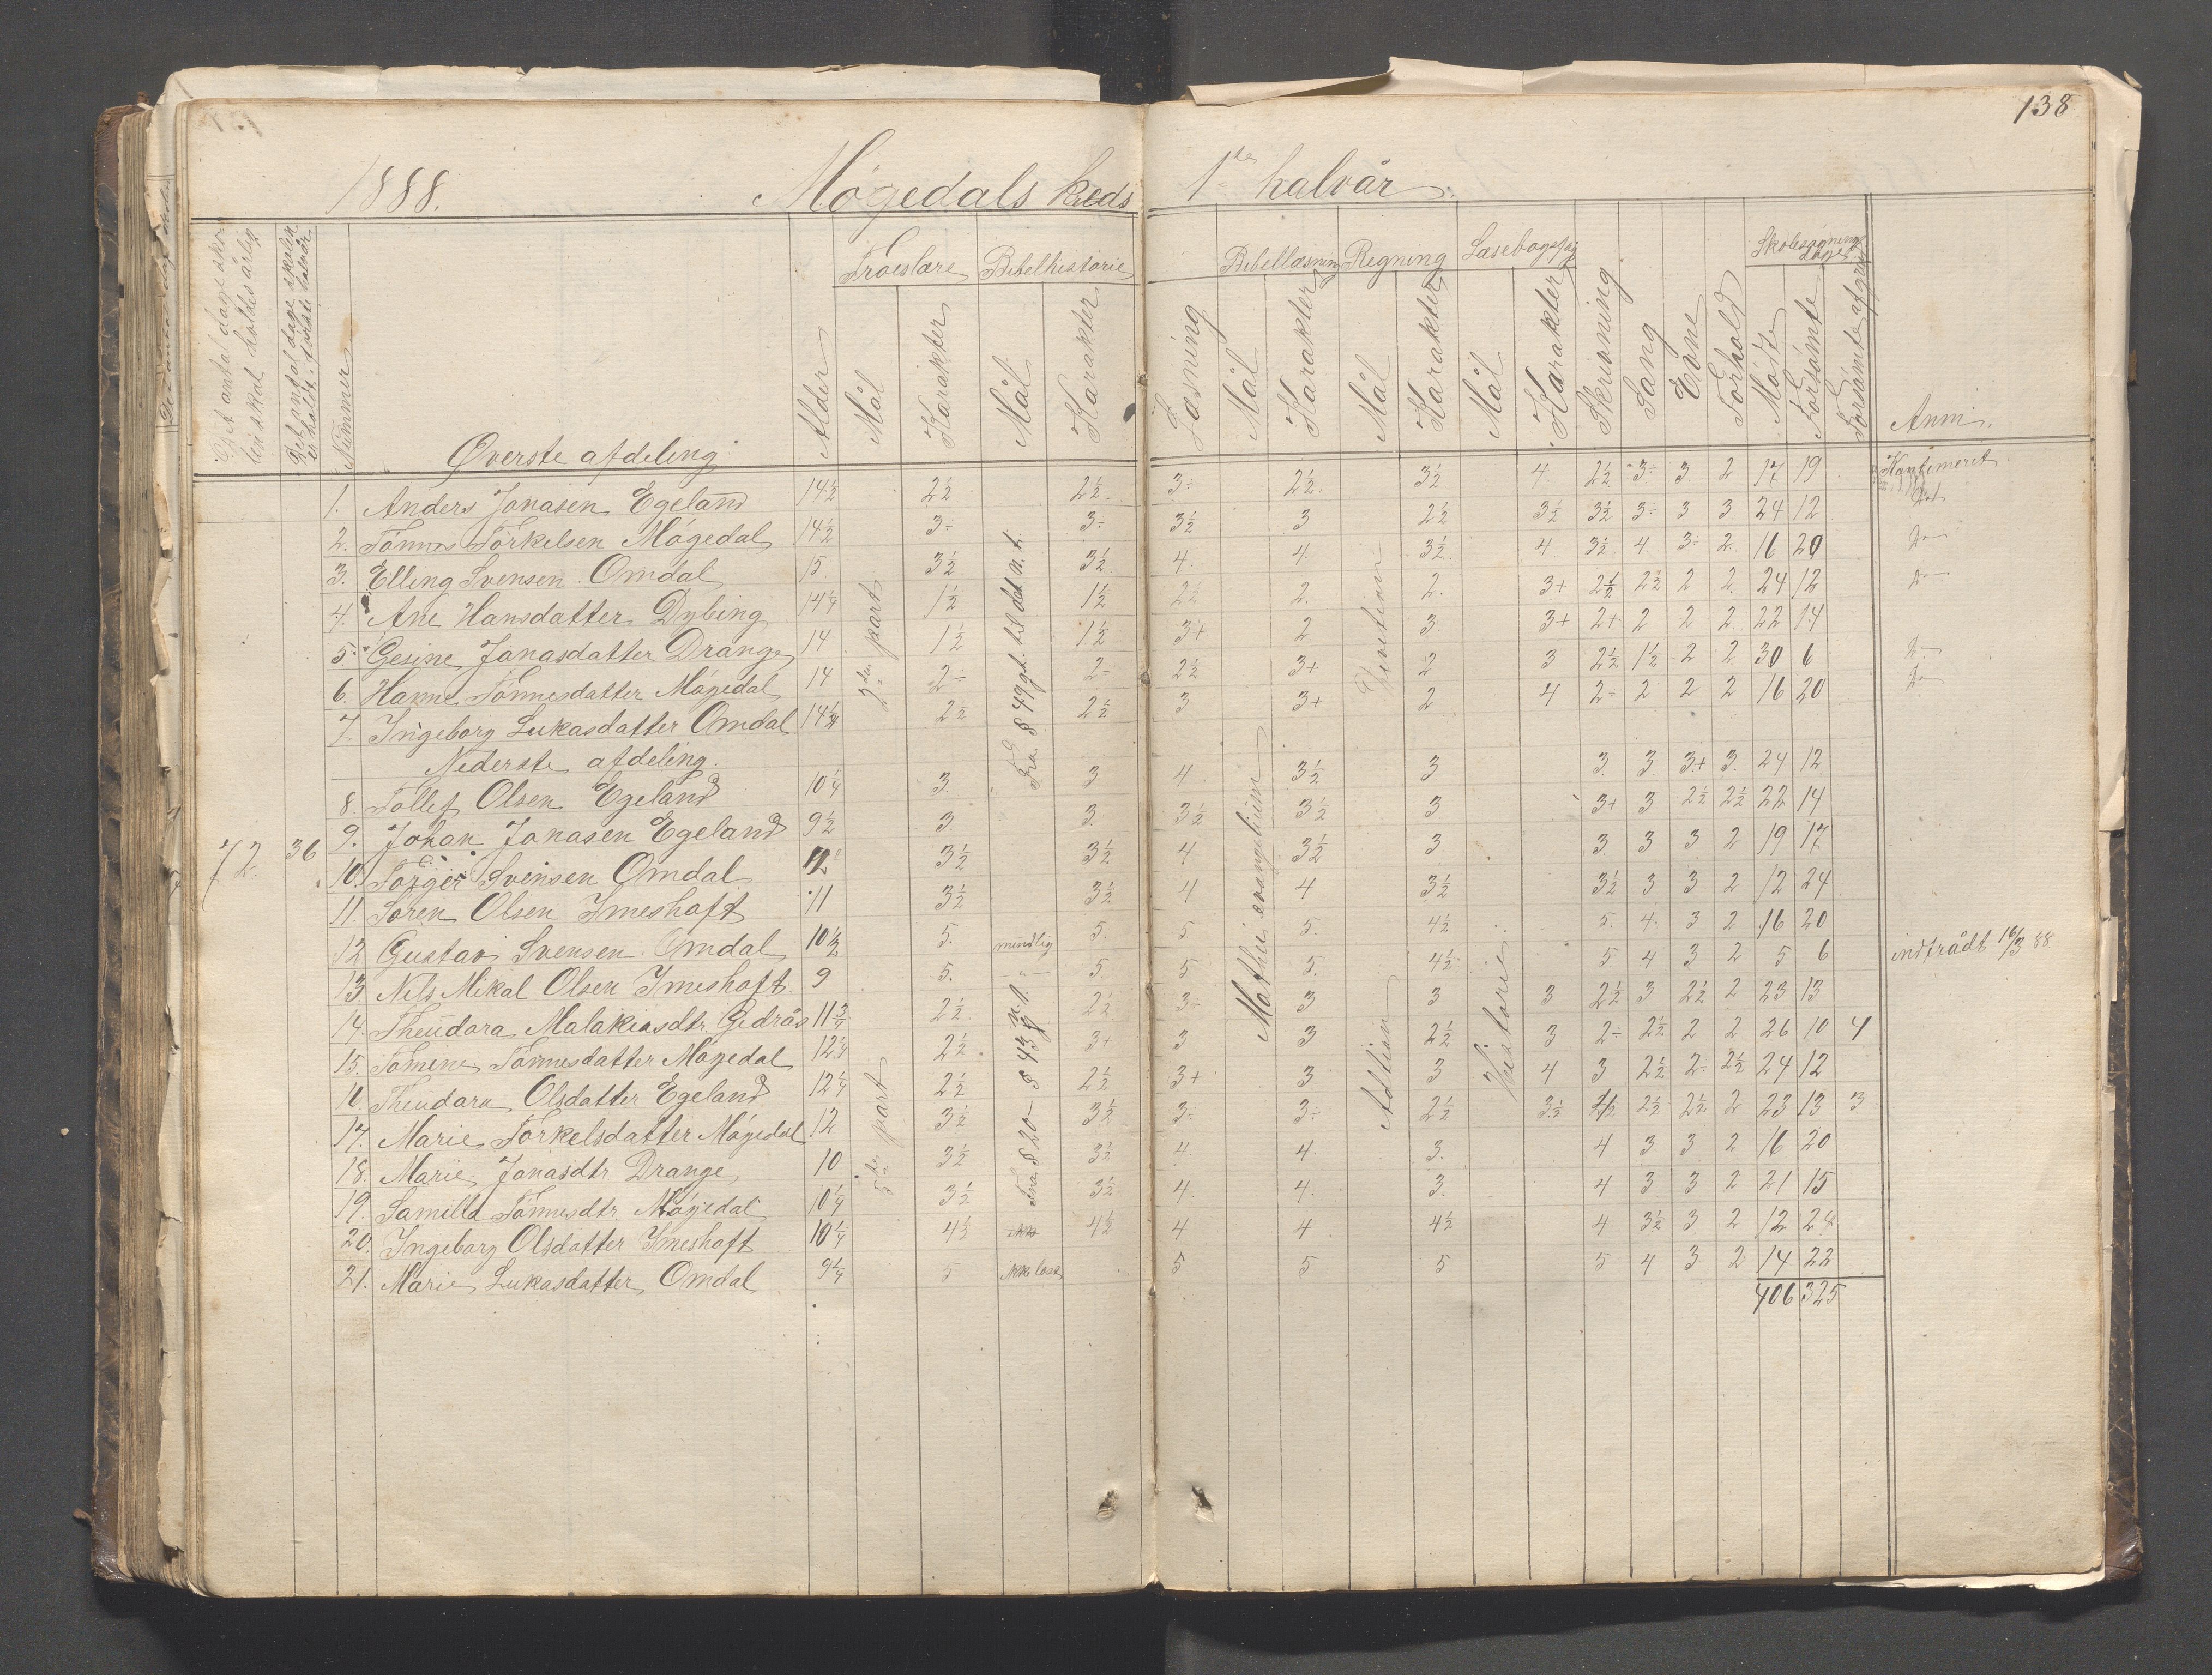 138
1888. Møgedals kreds 1ste halvår.
Det antal dage skolen skal holdes årlig
Det antal dage skolen er holdt første halvår
Nummer
Øverste afdeling
Alder
Troeslære Mål Karakter
Bibelhistorie Mål Karakter
Læsning
Bibellæsning Mål Karakter
Regning Mål Karakter
Læsebogsfag Mål Karakter
Skrivning
Sang
Evne
Forhold
Skolesøgningsdage Mødte Forsømte
Forsømte af
Anm.
1. Anders Jonasen Egeland 14½ 2½ 2½ 3÷ 2½ 3½ 4 2½ 3÷ 3 2 17 19 Konfirmeret
2. Tønnes Torkelsen Møgedal 14½ 3÷ 3÷ 3½ 3 2½ 3½ 3½ 3÷ 3 3 24 12 Do
3. Elling Svensen Omdal 15 3½ 3½ 4 4 3½ 4 3½ 4 3÷ 2 16 20 Do
4. Ane Hansdatter Dybing 14¼ 1½ 1½ 2½ 2 2 3+ 2½ 2½ 2 2 24 12 Do
5. Gesine Jonasdatter Drange 14 1½ 1½ 3+ 2 3 3+ 2+ 2 2 2 22 14
6. Hanne Tønnesdatter Møgedal 14 2÷ 2÷ 2½ 3+ 2 3 2½ 1½ 2 2 30 6 Do
7. Ingeborg Lukasdatter Omdal 14¼ 2½ 2½ 3 3+ 2 4 2÷ 2 2 2 16 20 Do
2den part
Fra § 49 gl. t. til det n. t.
Nederste afdeling.
8. Tollef Olsen Egeland 10¼ 3 3 4 3½ 3 3 3 3+ 3 24 12
9. Johan Jonasen Egeland 9½ 3 3 3½ 3½ 3 3+ 3 2½ 2½ 22 14
72 36
10. Torger Svensen Omdal 12 3½ 3½ 4 3½ 3 3 3 3 2 19 17
11. Søren Olsen Imeshaft 11 3½ 3½ 4 4 3½ 3½ 3 3 2 12 24
12. Gustav Svensen Omdal 10½ 5 mundlig 5 5 5 4½ 5 4 3 2 16 20
13. Nils Mikal Olsen Imeshaft 9 5 – " – 5 5 5 4½ 5 4 3 2 5 6 indtrådt 16/3 88
14. Theodora Malakiasdtr. Gedrås 11¾ 2½ 2½ 3÷ 3 3 3 2½ 3 2½ 2 23 13
15. Tomine Tønnesdatter Møgedal 12¼ 2½ 3+ 3 3 2½ 3 2÷ 2½ 2 2 26 10 4
16. Theodora Olsdatter Egeland 12¼ 2½ 2½ 3+ 3 3 4 3 2½ 2÷ 2½ 24 12
17. Marie Torkelsdatter Møgedal 12 3½ 3½ 3÷ 3÷ 2½ 3½ 2½ 2½ 2½ 2 23 13 3
18. Marie Jonasdtr. Drange 10 3½ 3½ 4 4 3 4 3 3 2 16 20
19. Samilla Tønnesdtr. Møgedal 10¼ 3½ 3½ 4 4 3 4 3 3 2 21 15
20. Ingeborg Olsdatter Imeshaft 10¼ 4½ 4½ 4 4 4½ 4 3½ 3 2 12 24
21. Marie Lukasdatter Omdal 9¼ 5 ikke læst 5 5 5 5 4 3 2 14 22
406 325
5te part
Fra § 20 – § 43 n. t.
Mathæi evangelium
Addition
Historie